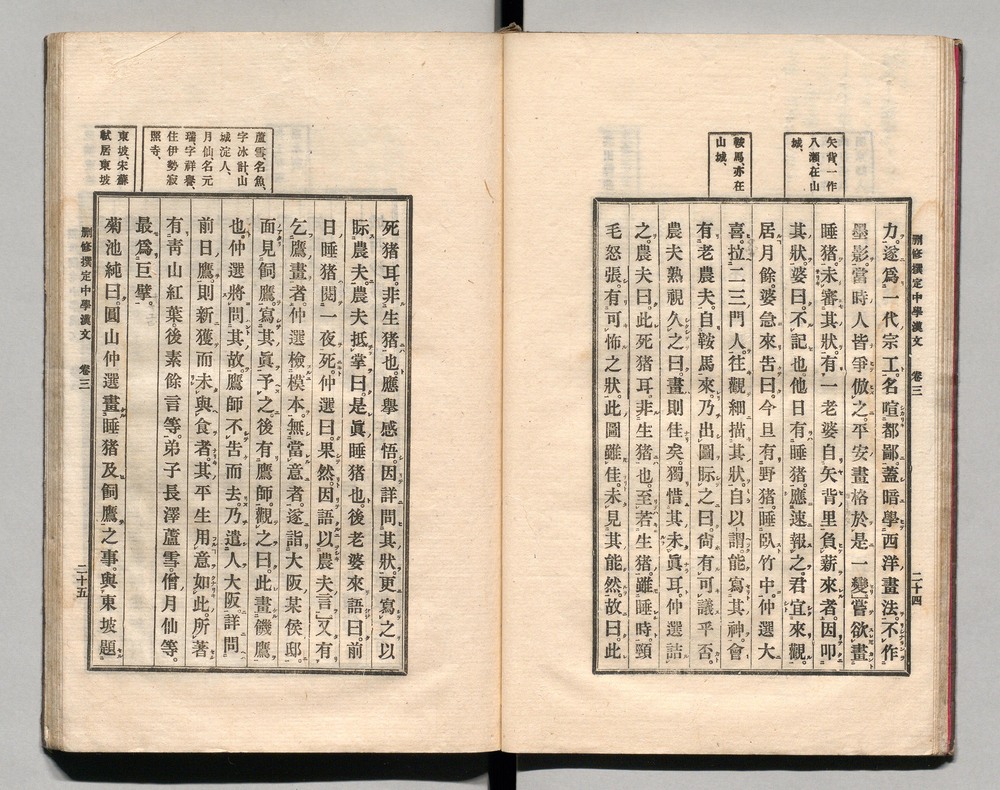 矢背、一作
八瀨、在山
城、
鞍馬、亦在
山城、
刪修撰定中學漢文 卷三
二十四
力。遂爲一代宗工。名喧都鄙。蓋暗學西洋畫法。不作
墨影。當時人皆爭倣之。平安畫格於是一變。嘗欲畫
睡猪。未審其狀。有一老婆自矢背里負薪來者。因叩
其狀。婆曰。不記也。他日有睡猪。應速報之。君宜來觀。
居月餘。婆急來吿曰。今旦有野猪。睡臥竹中。仲選大
喜。拉二三門人。往觀細描其狀。自以謂能寫其神。會
有老農夫。自鞍馬來。乃出圖眎之曰。尙有可議乎否。
農夫熟視久之曰。畫則佳矣。獨惜其未眞耳。仲選詰
之。農夫曰。此死猪耳。非生猪也。至若生猪。雖睡時。頸
毛怒張。有可怖之狀。此圖雖佳。未見其能然。故曰。此
死猪耳。非生猪也。應擧感悟。因詳問其狀。更寫之以
眎農夫。農夫抵掌曰。是眞睡猪也。後老婆來語曰。前
日睡猪。閱一夜死。仲選曰。果然。因語以農夫言。又有
乞鷹畫者。仲選檢模本。無當意者。遂詣大阪某侯邸。
面見飼鷹。寫其眞予之。後有鷹師。觀之曰。此畫饑鷹
也。仲選將問其故。鷹師不吿而去。乃遣人大阪。詳問
前日鷹。則新獲而未與食者。其平生用意如此。所著
有靑山紅葉後素餘言等。弟子長澤蘆雪。僧月仙等。
最爲巨擘。
菊池純曰。圓山仲選畫睡猪及飼鷹之事。與東坡題
蘆雪、名魚、
字冰計、山
城淀人、
月仙、名元
瑞、字祥譽、
住伊勢寂
照寺、
東坡、宋蘇
軾居東坡
刪修撰定中學漢文 卷三
二十五